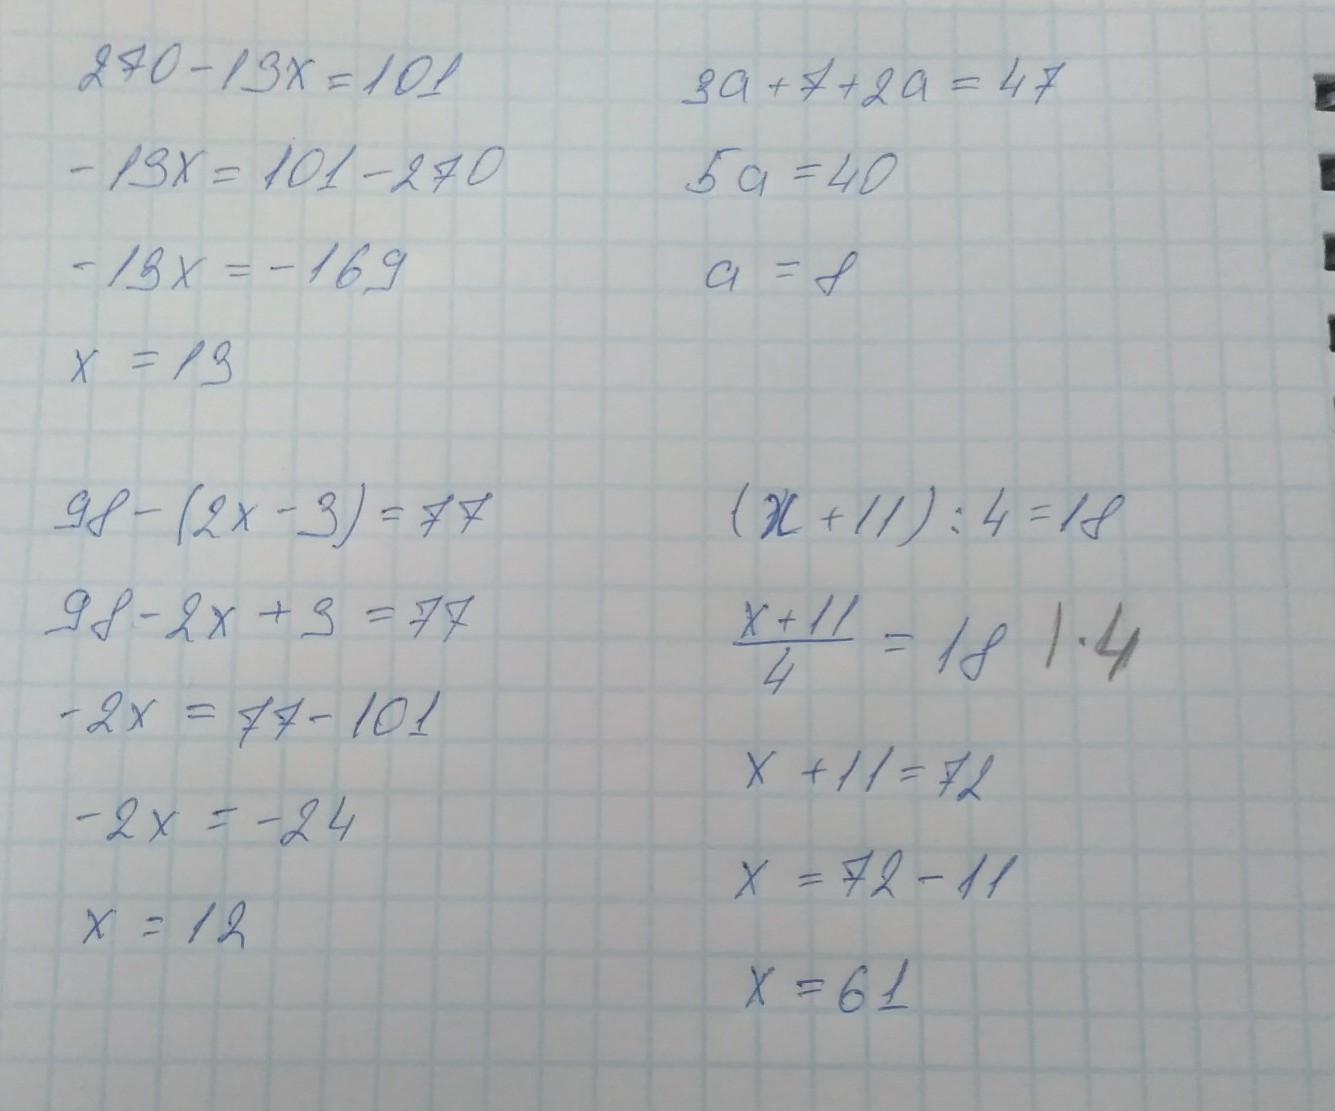 270-13x=101
-13x=101-270
-13x=-169
x=13
3a+7+2a=47
5a=40
a=8
98-(2x-3)=77
98-2x+3=77
-2x=77-101
-2x=-24
x=12
(x+11):4=18
x+11/4=18 |·4
x+11=72
x=72-11
x=61